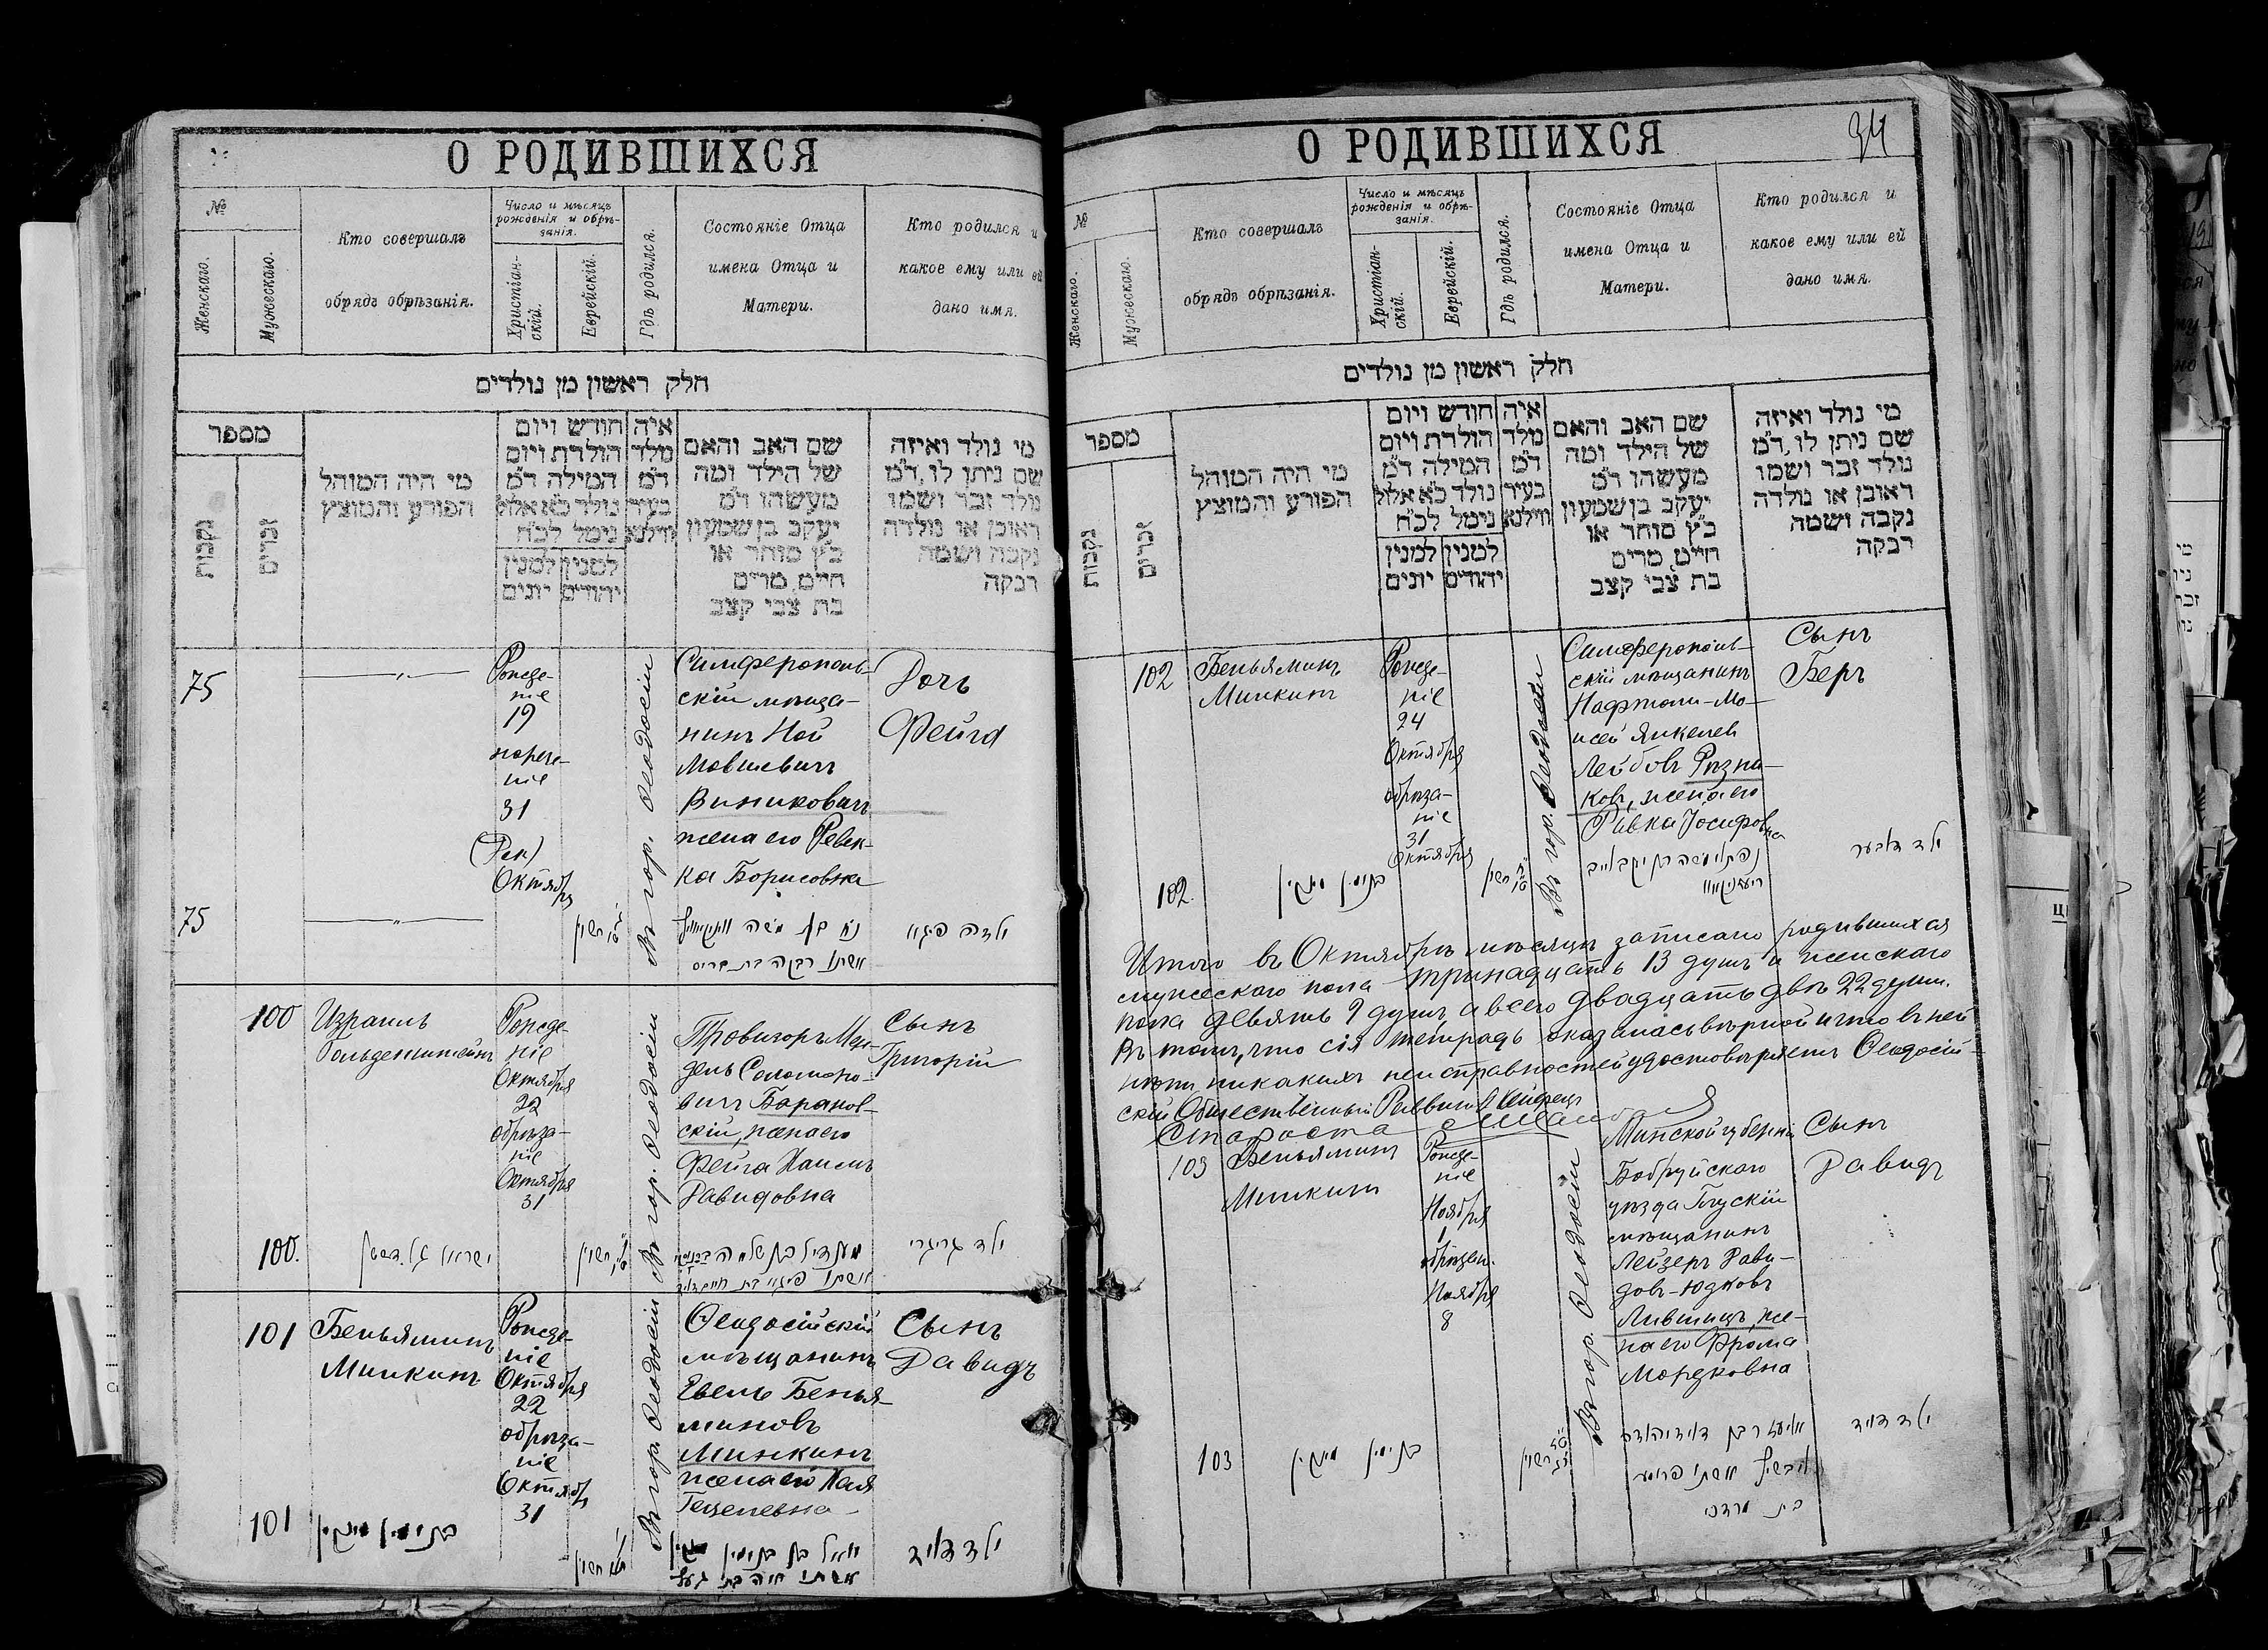 О РОДИВШИХСЯ
№
Женскаго.
Мужескаго.
Кто совершалъ
обрядъ обрѣзанія.
Число и мѣсяцъ
рожденія и обрѣ-
занія.
Христіан-
скій.
Еврейскій.
Гдѣ родился.
Состояніе Отца
имена Отца и
Матери.
Кто родился и
какое ему или ей
дано имя.
חלק ראשון מן נולדים
מספר
נקבות
זכרים
מי היה המוהל
הפורע והמוצץ
חודש ויום
הולדת ויום
המילה ד״מ
נולד כ״א אלול
נימל לכ״ח
למנין למנין
יהודים יונים
איה
מלד
ד״מ
בעיר
ווילנא
שם האב והאם
של הילד ומה
מעשהו ד״מ
יעקב בן שמעון
כ״ץ סוחר או
חיים מרים
בת צבי קצב
מי נולד ואיזה
שם ניתן לו, ד״מ
נולד זכר ושמו
ראובן או נולדה
נקבה ושמה
רבקה
75
Рожде-
ніе
19
нарече-
ніе
31
Октябр
Въ гор. Ѳеодосіи
Симферополь-
скій мѣща-
нинъ Ной
Мовшевичъ
Виниковичъ
жена его Ревек-
ка Борисовна
Дочь
Фейга
75
חשון
נח בן משה
אשתו רבקה בת
ילדה פגא
100
Израиль
Гольденштейнъ
Рожде-
ніе
Октября
22
обрѣза-
ніе
Октября
31
Въ гор. Ѳеодосіи
Провизоръ Мен-
дель Соломоно-
вичъ Баранов-
скій, жена его
Фейга Ханна
Давидовна
Сынъ
Григорій
100.
ישראל
חשון
מענדיל בן שלמה
אשתו פיגא בת
ילד גריגרי
101
Беньяминъ
Минкинъ
Рожде-
ніе
Октября
22
обрѣза-
ніе
Октяб
31
Въ гор. Ѳеодосіи
Ѳеодосійскій
мѣщанинъ
Евель Бенья-
миновъ
Минкинъ
жена его Хая
Гецелевна
Сынъ
Давидъ
101
בנימין מינקין
חשון
בן בנימין מינקין
אשתו חיה בת געצל
ילד דוד
О РОДИВШИХСЯ
34
№
Женскаго.
Мужескаго.
Кто совершалъ
обрядъ обрѣзанія.
Число и мѣсяцъ
рожденія и обрѣ-
занія.
Христіан-
скій.
Еврейскій.
Гдѣ родился.
Состояніе Отца
имена Отца и
Матери.
Кто родился и
какое ему или ей
дано имя.
חלק ראשון מן נולדים
מספר
נקבות
זכרים
מי היה המוהל
הפורע והמוצץ
חודש ויום
הולדת ויום
המילה ד״מ
נולד כ״א אלול
נימל לכ״ח
למנין למנין
יהודים יונים
איה
מלד
ד״מ
בעיר
ווילנא
שם האב והאם
של הילד ומה
מעשהו ד״מ
יעקב בן שמעון
כ״ץ סוחר או
חיים מרים
בת צבי קצב
מי נולד ואיזה
שם ניתן לו, ד״מ
נולד זכר ושמו
ראובן או נולדה
נקבה ושמה
רבקה
102
Беньяминъ
Минкинъ
Рожде-
ніе
24
Октября
обрѣза-
ніе
31
Октября
Въ гор. Ѳеодосіи
Симферополь-
скій мѣщанинъ
Нафтоли-Мо-
исей Янкелев
Лейбовъ Рѣзни-
ковъ, жена его
Ривка Іосифовна
Сынъ
Беръ
102.
בנימין מינקין
חשון
נפתלי משה בן יעקב לייב
ילד דובער
Итого въ Октябрѣ мѣсяцѣ записано родившихся
мужескаго пола тринадцать 13 душъ и женскаго
пола девять 9 душъ а всего двадцать двѣ 22 души.
Въ томъ, что сія тетрадь оказалась вѣрной и что въ ней
нѣтъ никакихъ неисправностей удостовѣряетъ Ѳеодосій-
скій Общественный Раввинъ
Староста
103
Беньяминъ
Минкинъ
Рожде-
ніе
Ноября
1
обрѣзан.
Ноября
8
Въ гор. Ѳеодосіи
Минской губерніи
Бобруйскаго
уѣзда Глускій
мѣщанинъ
Лейзеръ Дави-
довъ-Юдковъ
Лившицъ, же-
на его Фрома
Мордковна
Сынъ
Давидъ
103
בנימין מינקין
חשון
אליעזר בן דוד יהודה
ליבשיץ אשתו פרומע
בת מרדכי
ילד דוד